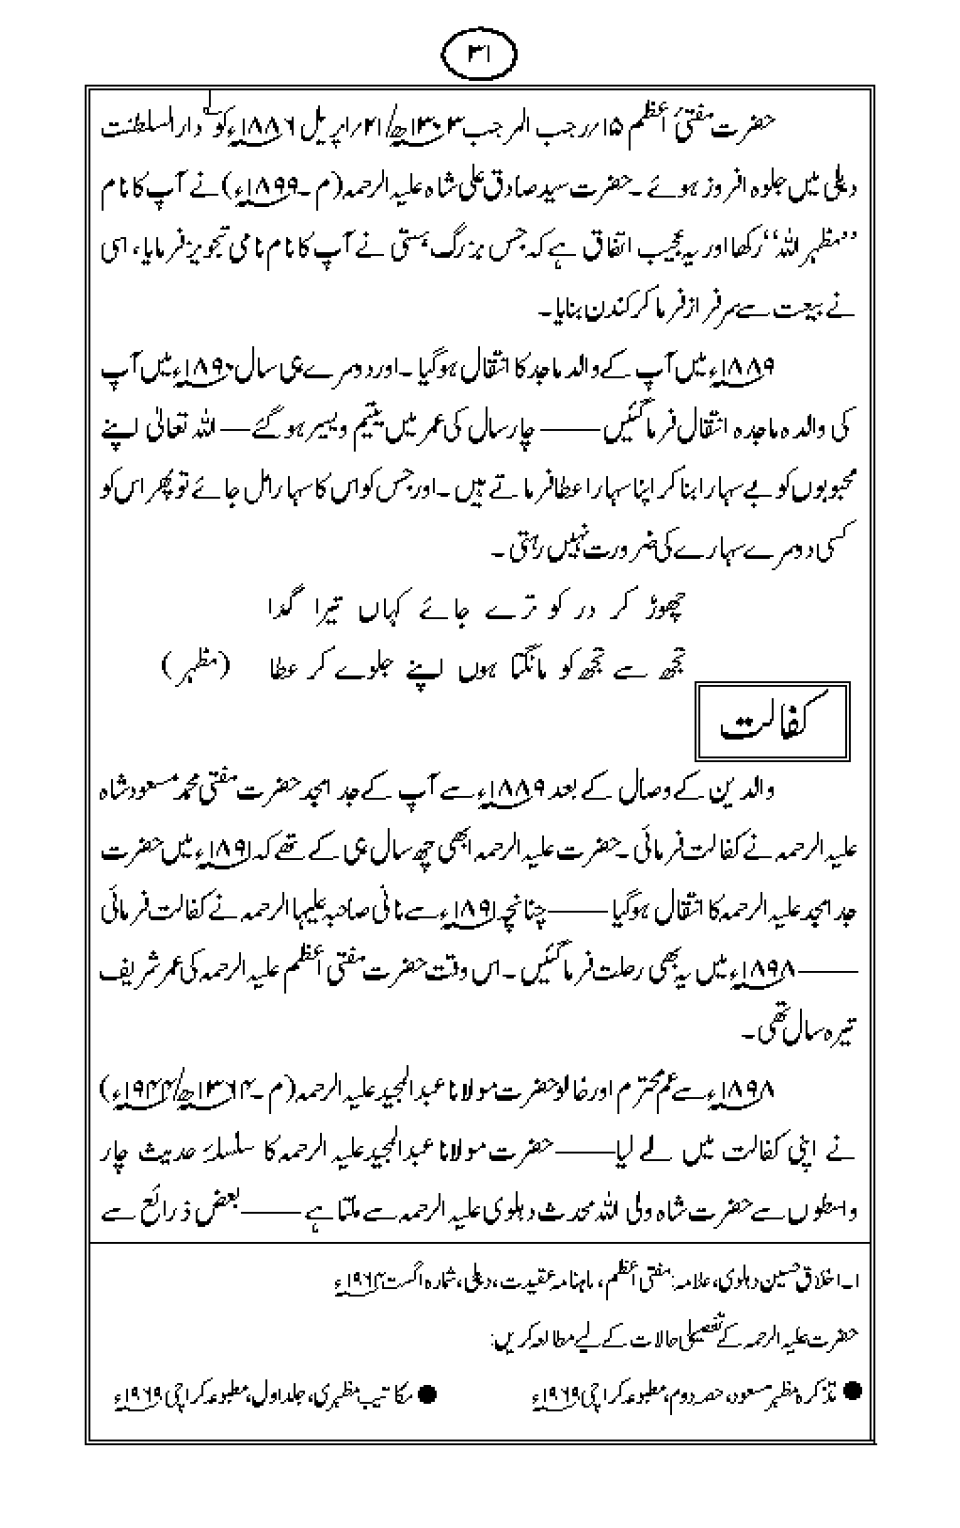 ۳۱
حضرت مفتیٔ اعظم ۱۵؍رجب المرجب ۱۳۰۳ھ/۲۱؍اپریل ۱۸۸۶ء کو ۱؎ دارالسلطنت
دہلی میں جلوہ افروز ہوئے ۔ حضرت سید صادق علی شاہ علیہ الرحمہ (م ۔ ۱۸۹۹ء) نے آپ کا نام
’’مظہر اللہ‘‘ رکھا اور یہ عجیب اتفاق ہے کہ جس بزرگ ہستی نے آپ کا نام نامی تجویز فرمایا، اسی
نے بیعت سے سرفراز فرما کر کندن بنایا ۔
۱۸۸۹ء میں آپ کے والد ماجد کا انتقال ہوگیا ۔ اور دوسرے ہی سال ۱۸۹۰ء میں آپ
کی والدہ ماجدہ انتقال فرما گئیں —— چار سال کی عمر میں یتیم و یسیر ہو گئے — اللہ تعالیٰ اپنے
محبوبوں کو بے سہارا بنا کر اپنا سہارا عطا فرماتے ہیں ۔ اور جس کو اس کا سہارا مل جائے تو پھر اس کو
کسی دوسرے سہارے کی ضرورت نہیں رہتی ۔
چھوڑ کر در کو ترے جائے کہاں تیرا گدا
تجھ سے تجھ کو مانگتا ہوں اپنے جلوے کر عطا (مظہر)
کفالت
والدین کے وصال کے بعد ۱۸۸۹ء سے آپ کے جد امجد حضرت مفتی محمد مسعود شاہ
علیہ الرحمہ نے کفالت فرمائی ۔ حضرت علیہ الرحمہ ابھی چھ سال ہی کے تھے کہ ۱۸۹۱ء میں حضرت
جد امجد علیہ الرحمہ کا انتقال ہوگیا —— چنانچہ ۱۸۹۱ء سے نانی صاحبہ علیہا الرحمہ نے کفالت فرمائی
—— ۱۸۹۸ء میں یہ بھی رحلت فرما گئیں ۔ اس وقت حضرت مفتی اعظم علیہ الرحمہ کی عمر شریف
تیرہ سال تھی ۔
۱۸۹۸ء سے عم محترم اور خالو حضرت مولانا عبدالمجید علیہ الرحمہ (م ۔ ۱۳۶۴ھ/۱۹۴۴ء)
نے اپنی کفالت میں لے لیا —— حضرت مولانا عبدالمجید علیہ الرحمہ کا سلسلۂ حدیث چار
واسطوں سے حضرت شاہ ولی اللہ محدث دہلوی علیہ الرحمہ سے ملتا ہے —— بعض ذرائع سے
۱۔ اخلاق حسین دہلوی، علامہ: مفتی اعظم، ماہنامہ عقیدت، دہلی، شمارہ اگست ۱۹۶۴ء
حضرت علیہ الرحمہ کے تفصیلی حالات کے لیے مطالعہ کریں:
● تذکرہ مظہر مسعود، حصہ دوم، مطبوعہ کراچی ۱۹۶۹ء ● مکاتیب مظہری، جلد اول، مطبوعہ کراچی ۱۹۶۹ء